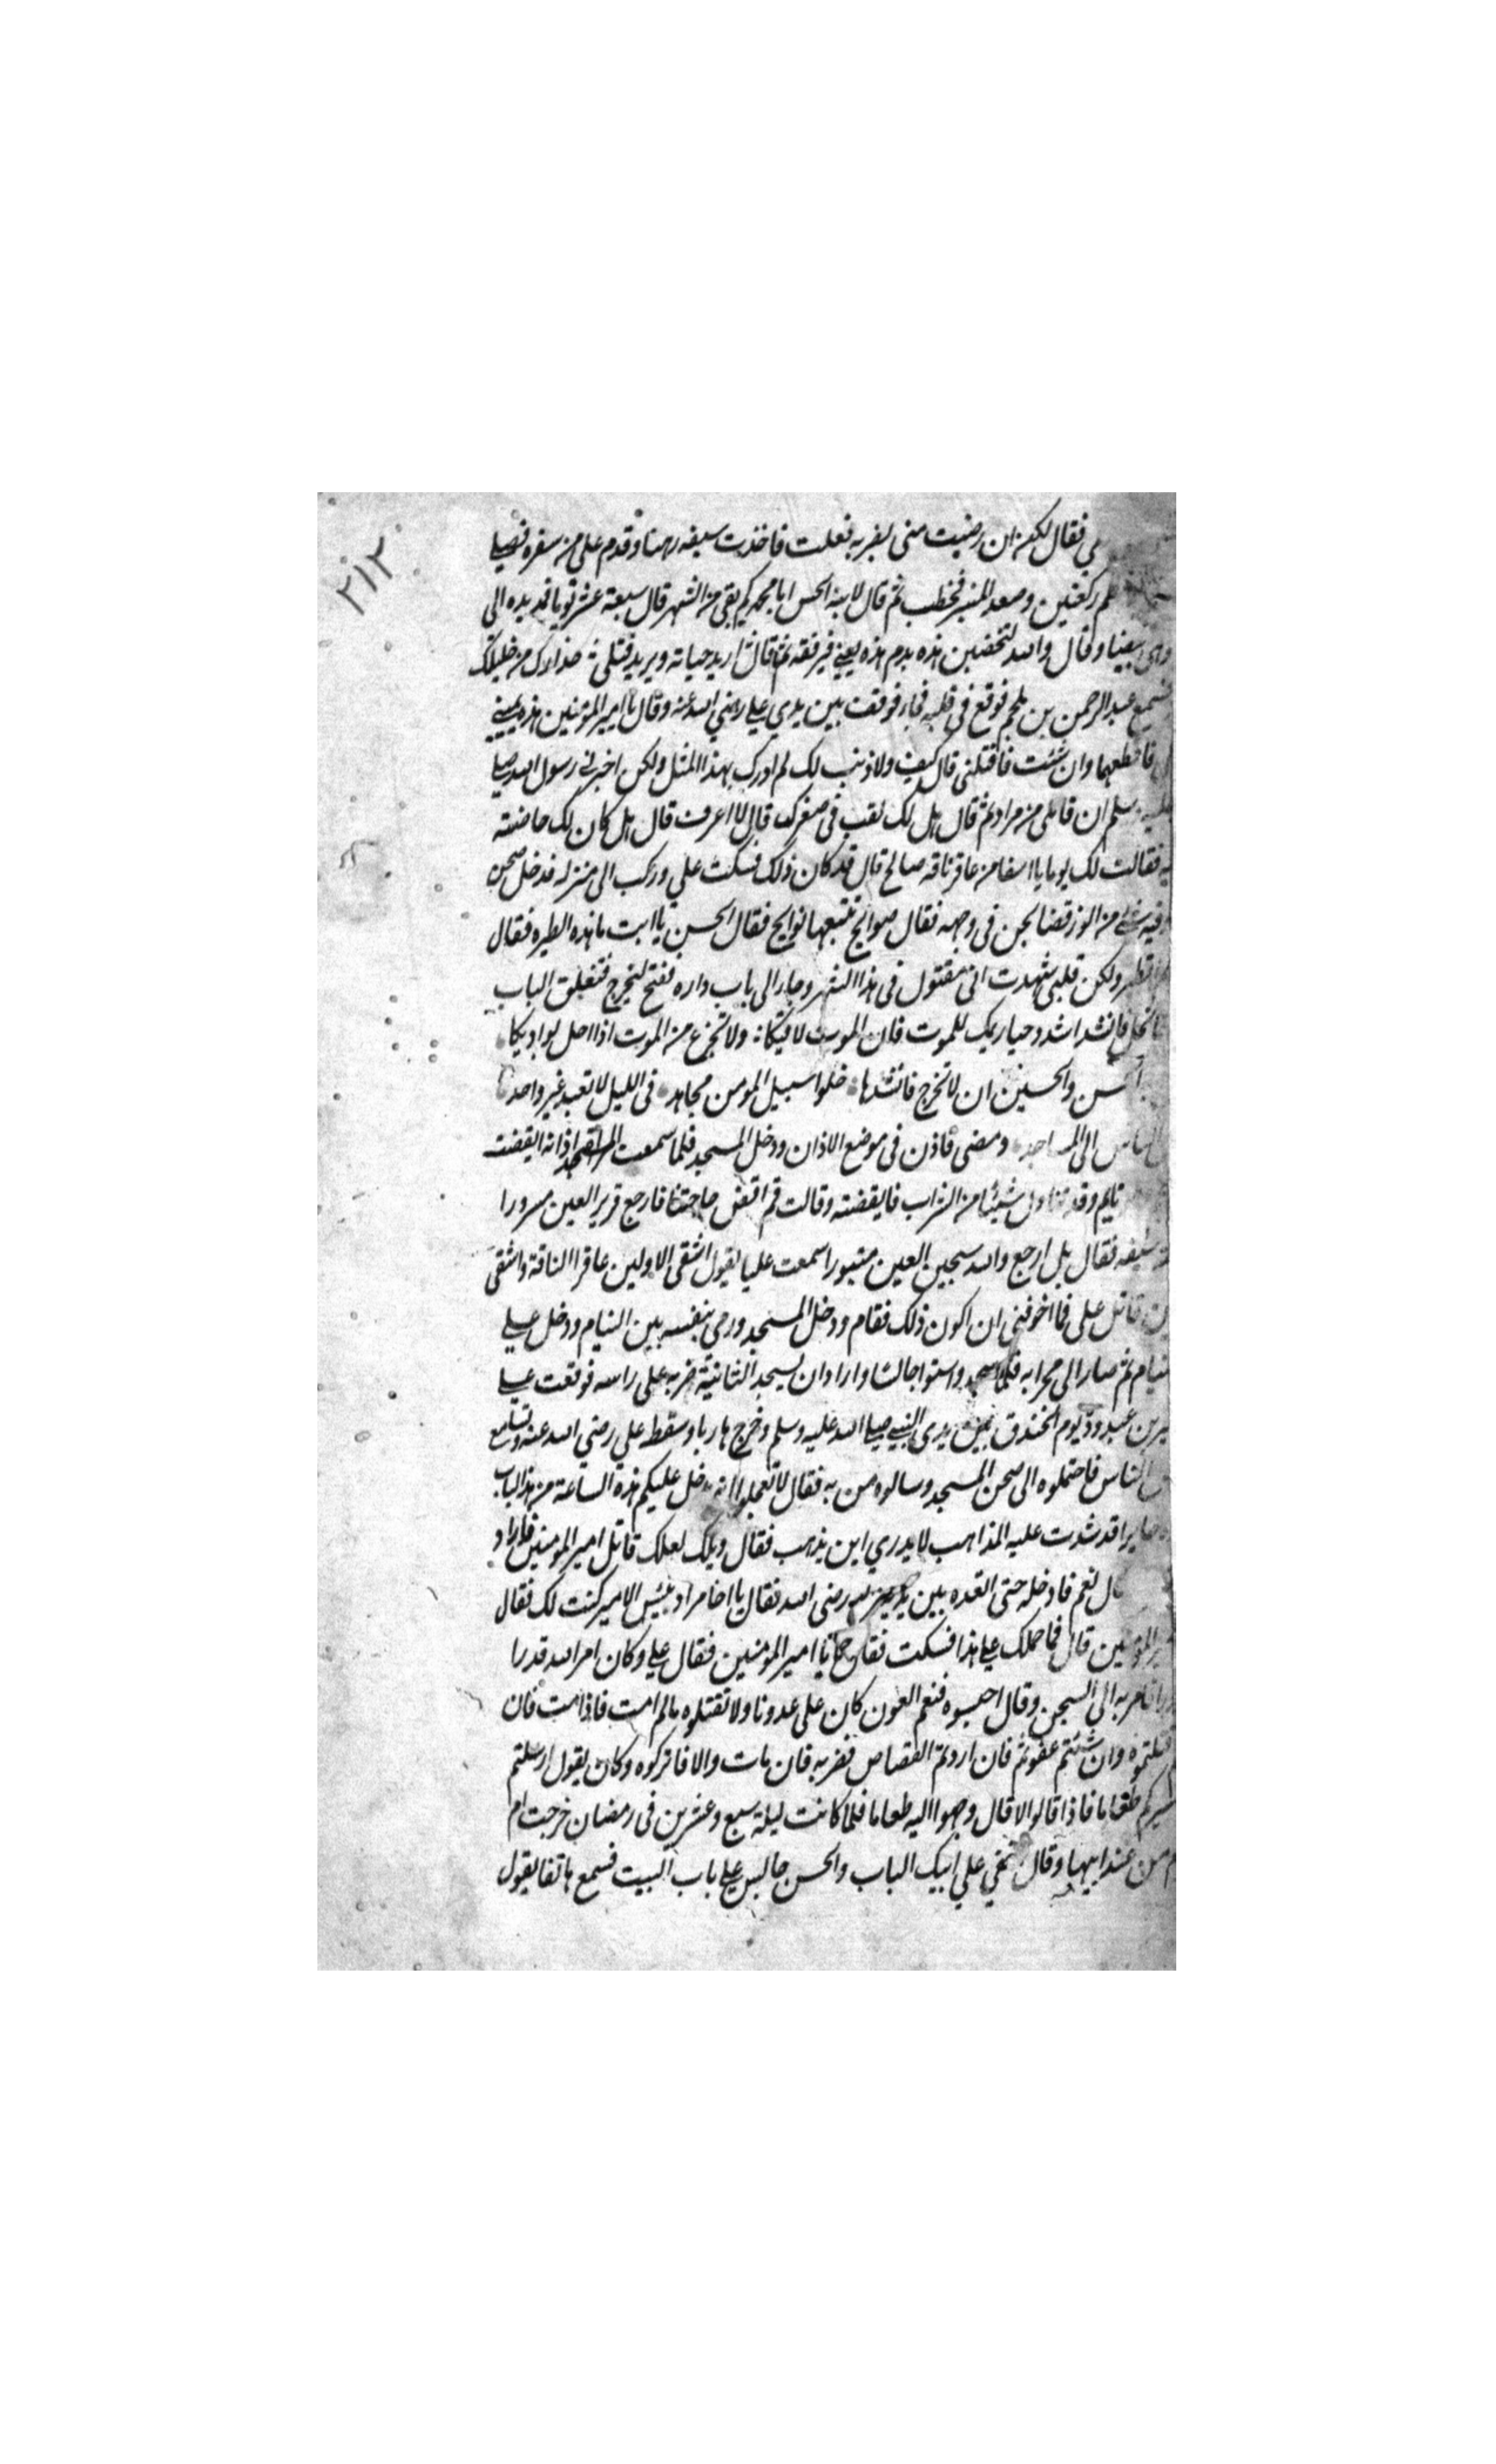 ٢١٣
فقال لكن ان رضيت مني بضربه فعلت فاخذت سيفه رهنا وقدم علي من سفره فصلي
ركعتين وصعد المنبر فخطب ثم قال لابنه الحسن ابا محمد كم بقي من الشهر قال سبعة عشر يوما فمد يده الي
وقال والله لتخضبن هذه بدم هذه يعني ثم قال اريد حياته ويريد قتلي عذيرك من خليلك
عبد الرحمن بن ملجم فوقع في قلبه فجاء فوقف بين يدي علي رضي الله عنه وقال يا امير المؤمنين هذه يميني
فاقطعها وان شئت فاقتلني قال كيف ولا ذنب لك لم ادرك بهذا المثل ولكن اخبرني رسول الله صلي
وسلم ان قاتلي من مراد ثم قال هل لك لقب في صغرك قال لا اعرف قال هل كان لك حاضنته
فقالت لك يوما يا اسفا من عاقر ناقة صالح قال قد كان ذلك فسكت علي وركب الي منزله فدخل صحن
من الوز فصا لحن في وجهه فقال صوايح تتبعها نوايح فقال الحسن يا ابت ما هذه الطيره فقال
ولكن قلبي شهدت اني مقتول في هذا الشهر وجاء الي باب داره ففتح ليخرج فتغلق الباب
فانشد اشدد حيازيمك للموت فان الموت لاقيكا ولا تجزع من الموت اذا حل بواديكا
والحسين ان لا تخرج فانشدها خلوا سبيل المومن مجاهد في الليل لا تعبد غير واحد
الي المساجد ومضي فاذن في موضع الاذان ودخل المسجد فلما سمعت اذانه ايقضت
نايم وقد تناول شيئا من الشراب فايقضته وقالت قم اقض حاجتنا فارجع قرير العين مسرورا
سيفه فقال بل ارجع والله سخين العين مثبورا سمعت عليا يقول اشقي الاولين عاقر الناقة واشقي
قاتل علي فما اخوفني ان اكون ذلك فقام ودخل المسجد ورمي بنفسه بين النيام ودخل علي
ثم صار الي محرابه فلما سجد واستوا جالسا واراد ان يسجد الثانية ضربه علي راسه فوقعت علي
بن عبد ود يوم الخندق بين يدي النبي صلي الله عليه وسلم وخرج هاربا وسقط علي رضي الله عنه وتسامع
الناس فاحتملوه الي صحن المسجد وسالوه من به فقال لا تعجلوا انه يدخل عليكم هذه الساعة من هذا الباب
قد شدت عليه المذاهب لا يدري اين يذهب فقال ويلك لعلك قاتل امير المومنين فاراد
قال نعم فادخله حتي اقعده بين يدي رضي الله فقال يا اخا مراد بئس الامير كنت لك فقال
المؤمنين قال فما حملك علي هذا فسكت فقال يا امير المومنين فقال علي وكان امر الله قدرا
فامر به الي السجن وقال احبسوه فنعم العون كان علي عدونا ولا تقتلوه ما لم امت فاذا مت فان
قتلتموه وان شئتم عفوتم فان اردتم القصاص فضربه فان مات والا فاتركوه وكان يقول ارسلتم
طعاما فاذا قالوا لا قال وجهوا اليه طعاما فلما كانت ليلة سبع وعشرين في رمضان خرجت ام
من عند ابيها وقال علي ابيك الباب والحسن جالس علي باب البيت فسمع هاتفا يقول